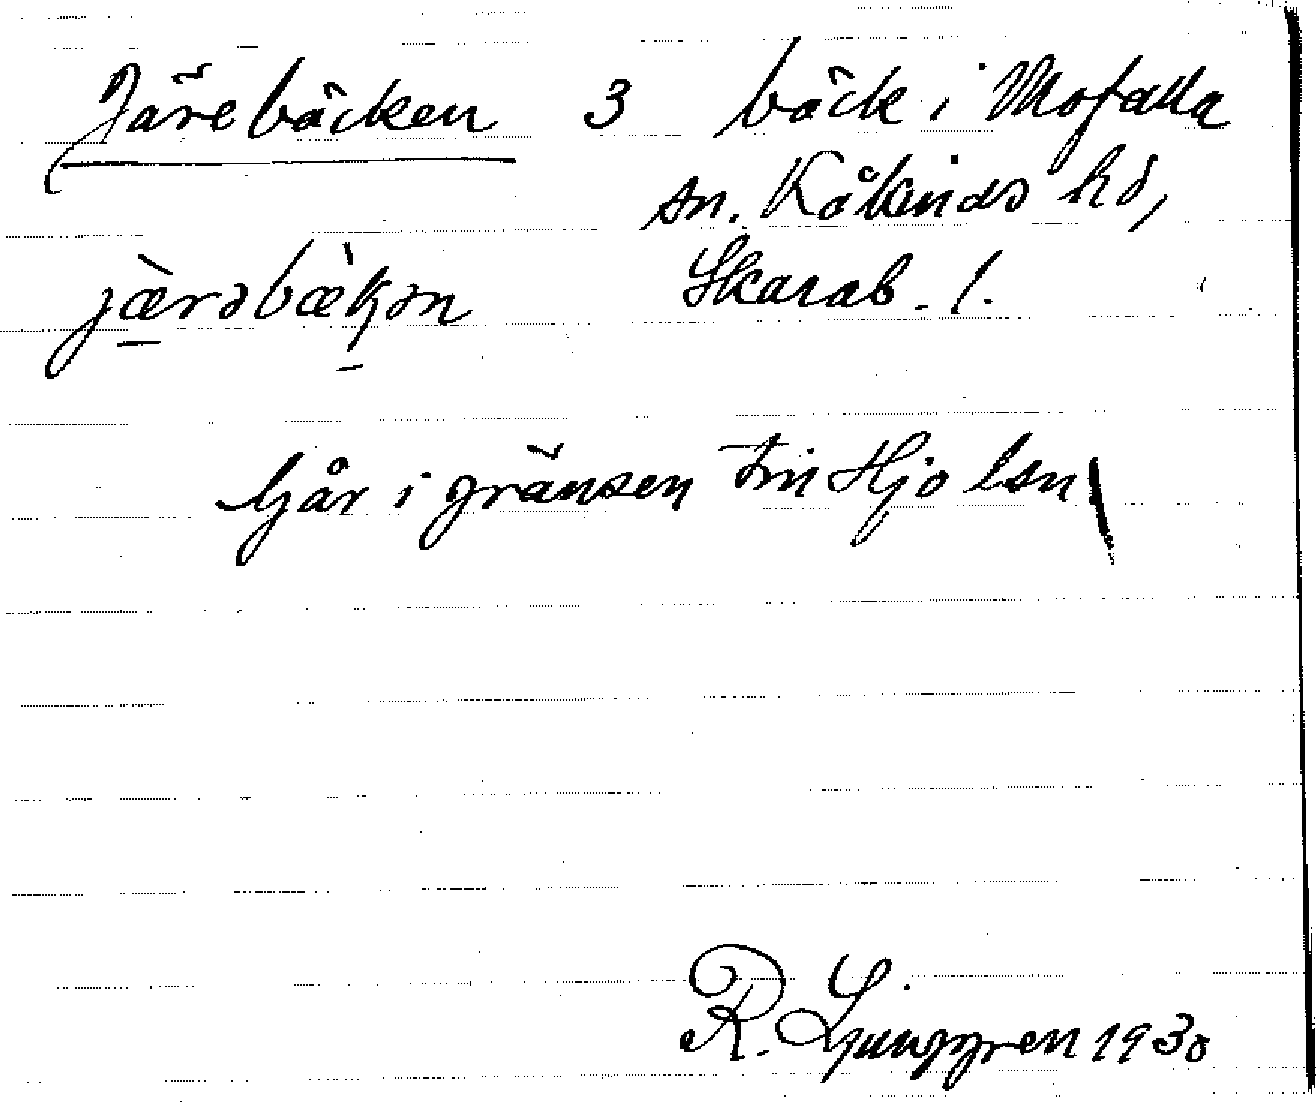 Järebäcken 3 bäck i Mofalla
sn. Kåkinds hd,
jæ̀rəbæ̀kən Skarab. l.
Går i gränsen till Hjo lsn
R. Ljunggren 1930